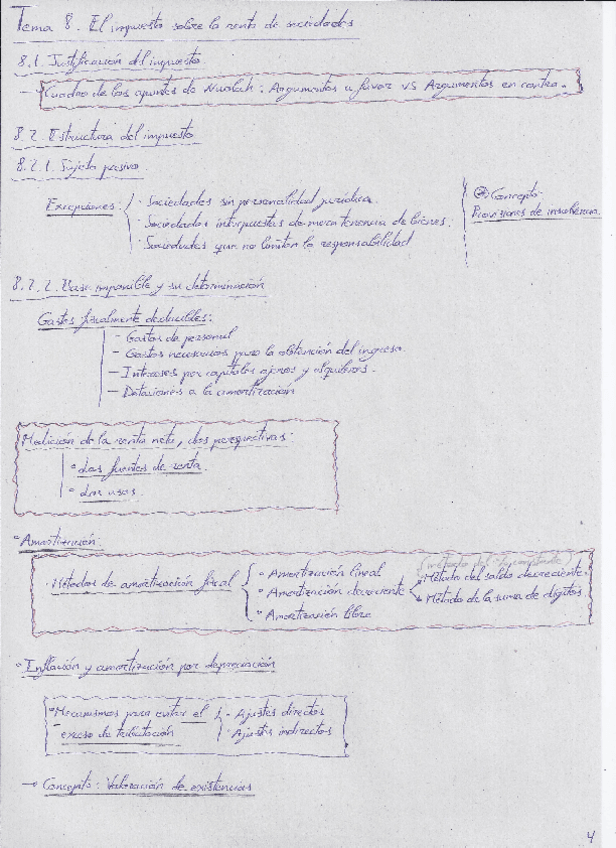 Tema 8. El impuesto sobre la renta de sociedades
8.1. Justificación del impuesto
→ Cuadro de los apuntes de Nualah: Argumentos a favor VS Argumentos en contra.
8.2. Estructura del impuesto
8.2.1. Sujeto pasivo
Excepciones:
· Sociedades sin personalidad jurídica.
· Sociedades interpuestas de mera tenencia de bienes.
· Sociedades que no limiten la responsabilidad
Concepto:
Provisiones de insolvencia.
8.2.2. Base imponible y su determinación
Gastos fiscalmente deducibles:
- Gastos de personal
- Gastos necesarios para la obtención del ingreso.
- Intereses por capitales ajenos y alquileres.
- Dotaciones a la amortización
Medición de la renta neta, dos perspectivas:
· Las fuentes de renta.
· Los usos.
· Amortización:
· Métodos de amortización fiscal
· Amortización lineal
· Amortización decreciente
· Método del saldo decreciente
· Método de la suma de dígitos.
· Amortización libre
· Inflación y amortización por depreciación
· Mecanismos para evitar el
exceso de tributación
- Ajustes directos
· Ajustes indirectos
→ Concepto: Valoración de existencias
4